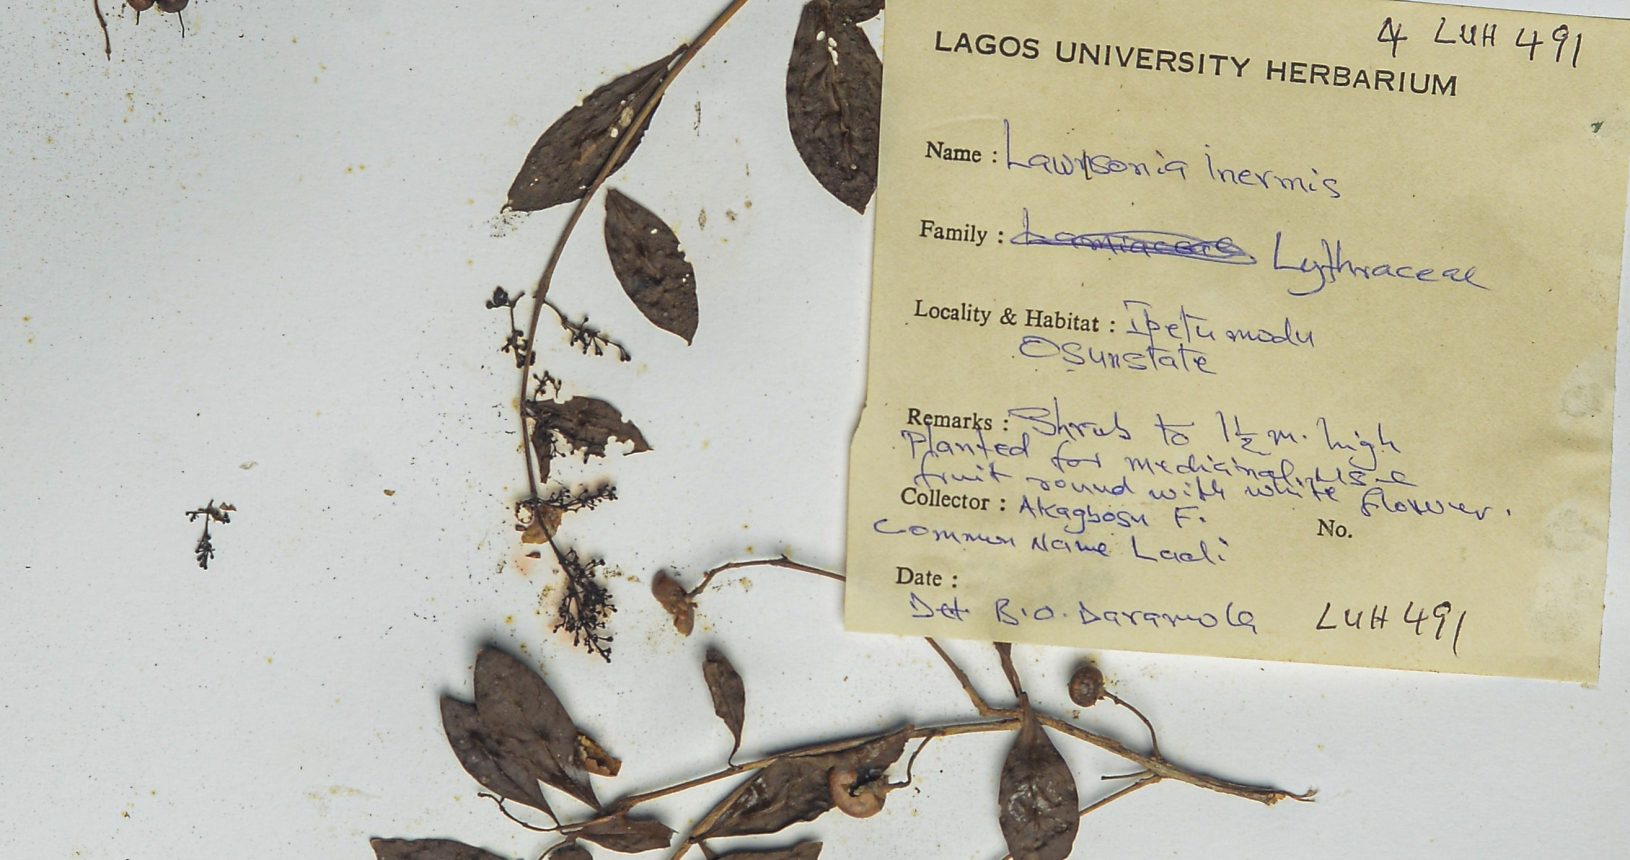 4 LUH 491
LAGOS UNIVERSITY HERBARIUM
Name : Lawsonia inermis
Family : Lamiaceae Lythraceae
Locality & Habitat : Ipetumodu
Osun state
Remarks : Shrub to 1½ m. high
Planted for medicinal use
fruit round with white flower.
Collector : Akagbosu F. No.
Common Name Laali
Date :
Det B.O. Daramola LUH 491